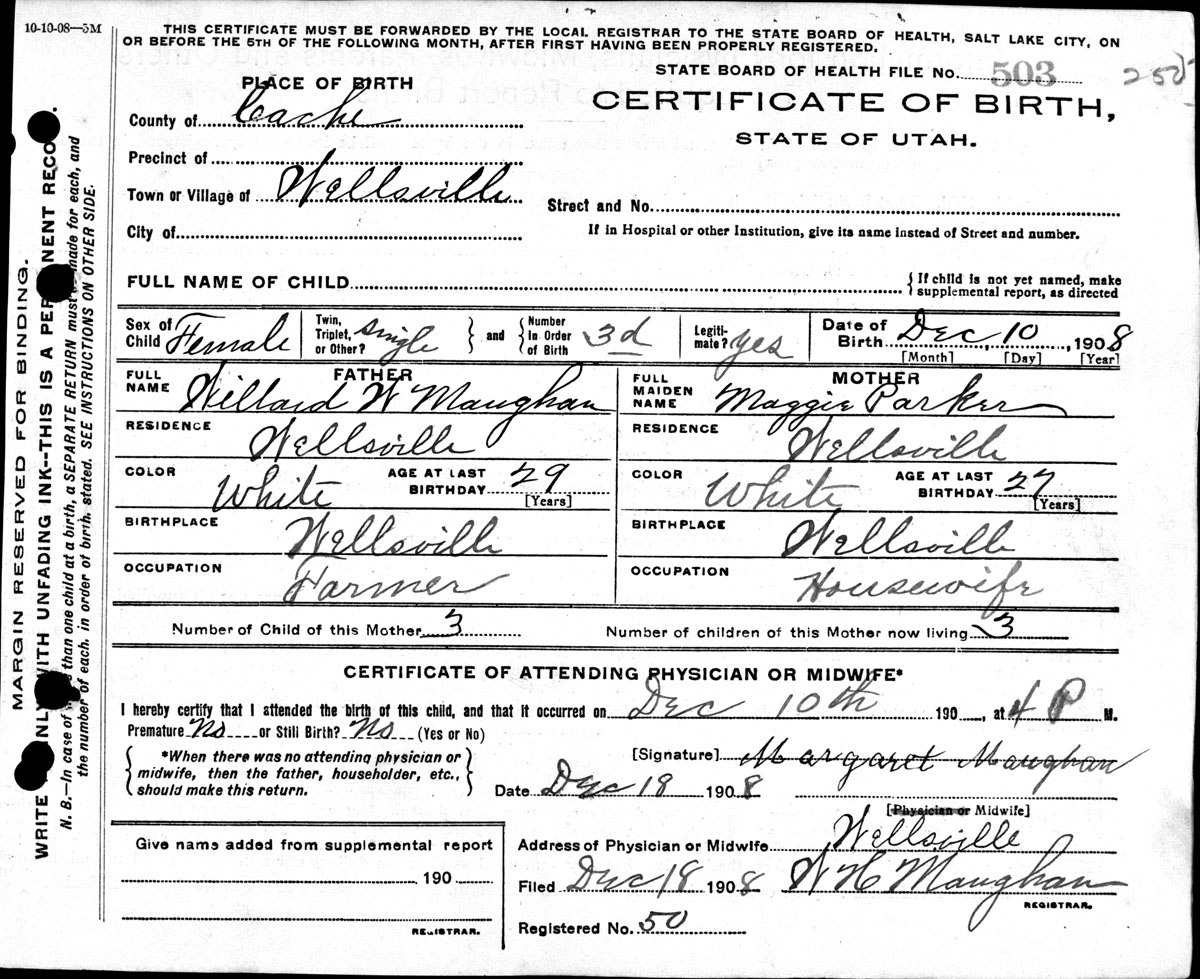 10-10-08—5M
THIS CERTIFICATE MUST BE FORWARDED BY THE LOCAL REGISTRAR TO THE STATE BOARD OF HEALTH, SALT LAKE CITY, ON
OR BEFORE THE 5TH OF THE FOLLOWING MONTH, AFTER FIRST HAVING BEEN PROPERLY REGISTERED.
STATE BOARD OF HEALTH FILE NO. 503
CERTIFICATE OF BIRTH,
STATE OF UTAH.
PLACE OF BIRTH
County of Cache
Precinct of
Town or Village of Wellsville
City of
Street and No.
If in Hospital or other Institution, give its name instead of Street and number.
FULL NAME OF CHILD
{ If child is not yet named, make
supplemental report, as directed
Sex of Child Female
Twin, Triplet, or Other? single } and { Number in Order of Birth 3d
Legiti-mate? yes
Date of Birth Dec 10, 1908
[Month] [Day] [Year]
FATHER
FULL NAME Willard W Maughan
RESIDENCE Wellsville
COLOR White AGE AT LAST BIRTHDAY 29 [Years]
BIRTHPLACE Wellsville
OCCUPATION Farmer
MOTHER
FULL MAIDEN NAME Maggie Parker
RESIDENCE Wellsville
COLOR White AGE AT LAST BIRTHDAY 27 [Years]
BIRTHPLACE Wellsville
OCCUPATION Housewife
Number of Child of this Mother 3 Number of children of this Mother now living 3
CERTIFICATE OF ATTENDING PHYSICIAN OR MIDWIFE*
I hereby certify that I attended the birth of this child, and that it occurred on Dec 10th 190 , at 4 P M.
Premature No or Still Birth? No (Yes or No)
{ *When there was no attending physician or
midwife, then the father, householder, etc.,
should make this return. }
[Signature] Margaret Maughan
Date Dec 18 1908
[Physician or Midwife]
Address of Physician or Midwife Wellsville
Filed Dec 18 1908 W H Maughan
REGISTRAR.
Registered No. 50
Give name added from supplemental report
190
REGISTRAR.
MARGIN RESERVED FOR BINDING.
WRITE ONLY WITH UNFADING INK--THIS IS A PERMANENT RECO
N. B.—In case of than one child at a birth, a SEPARATE RETURN must be made for each, and
the number of each, in order of birth, stated. SEE INSTRUCTIONS ON OTHER SIDE.